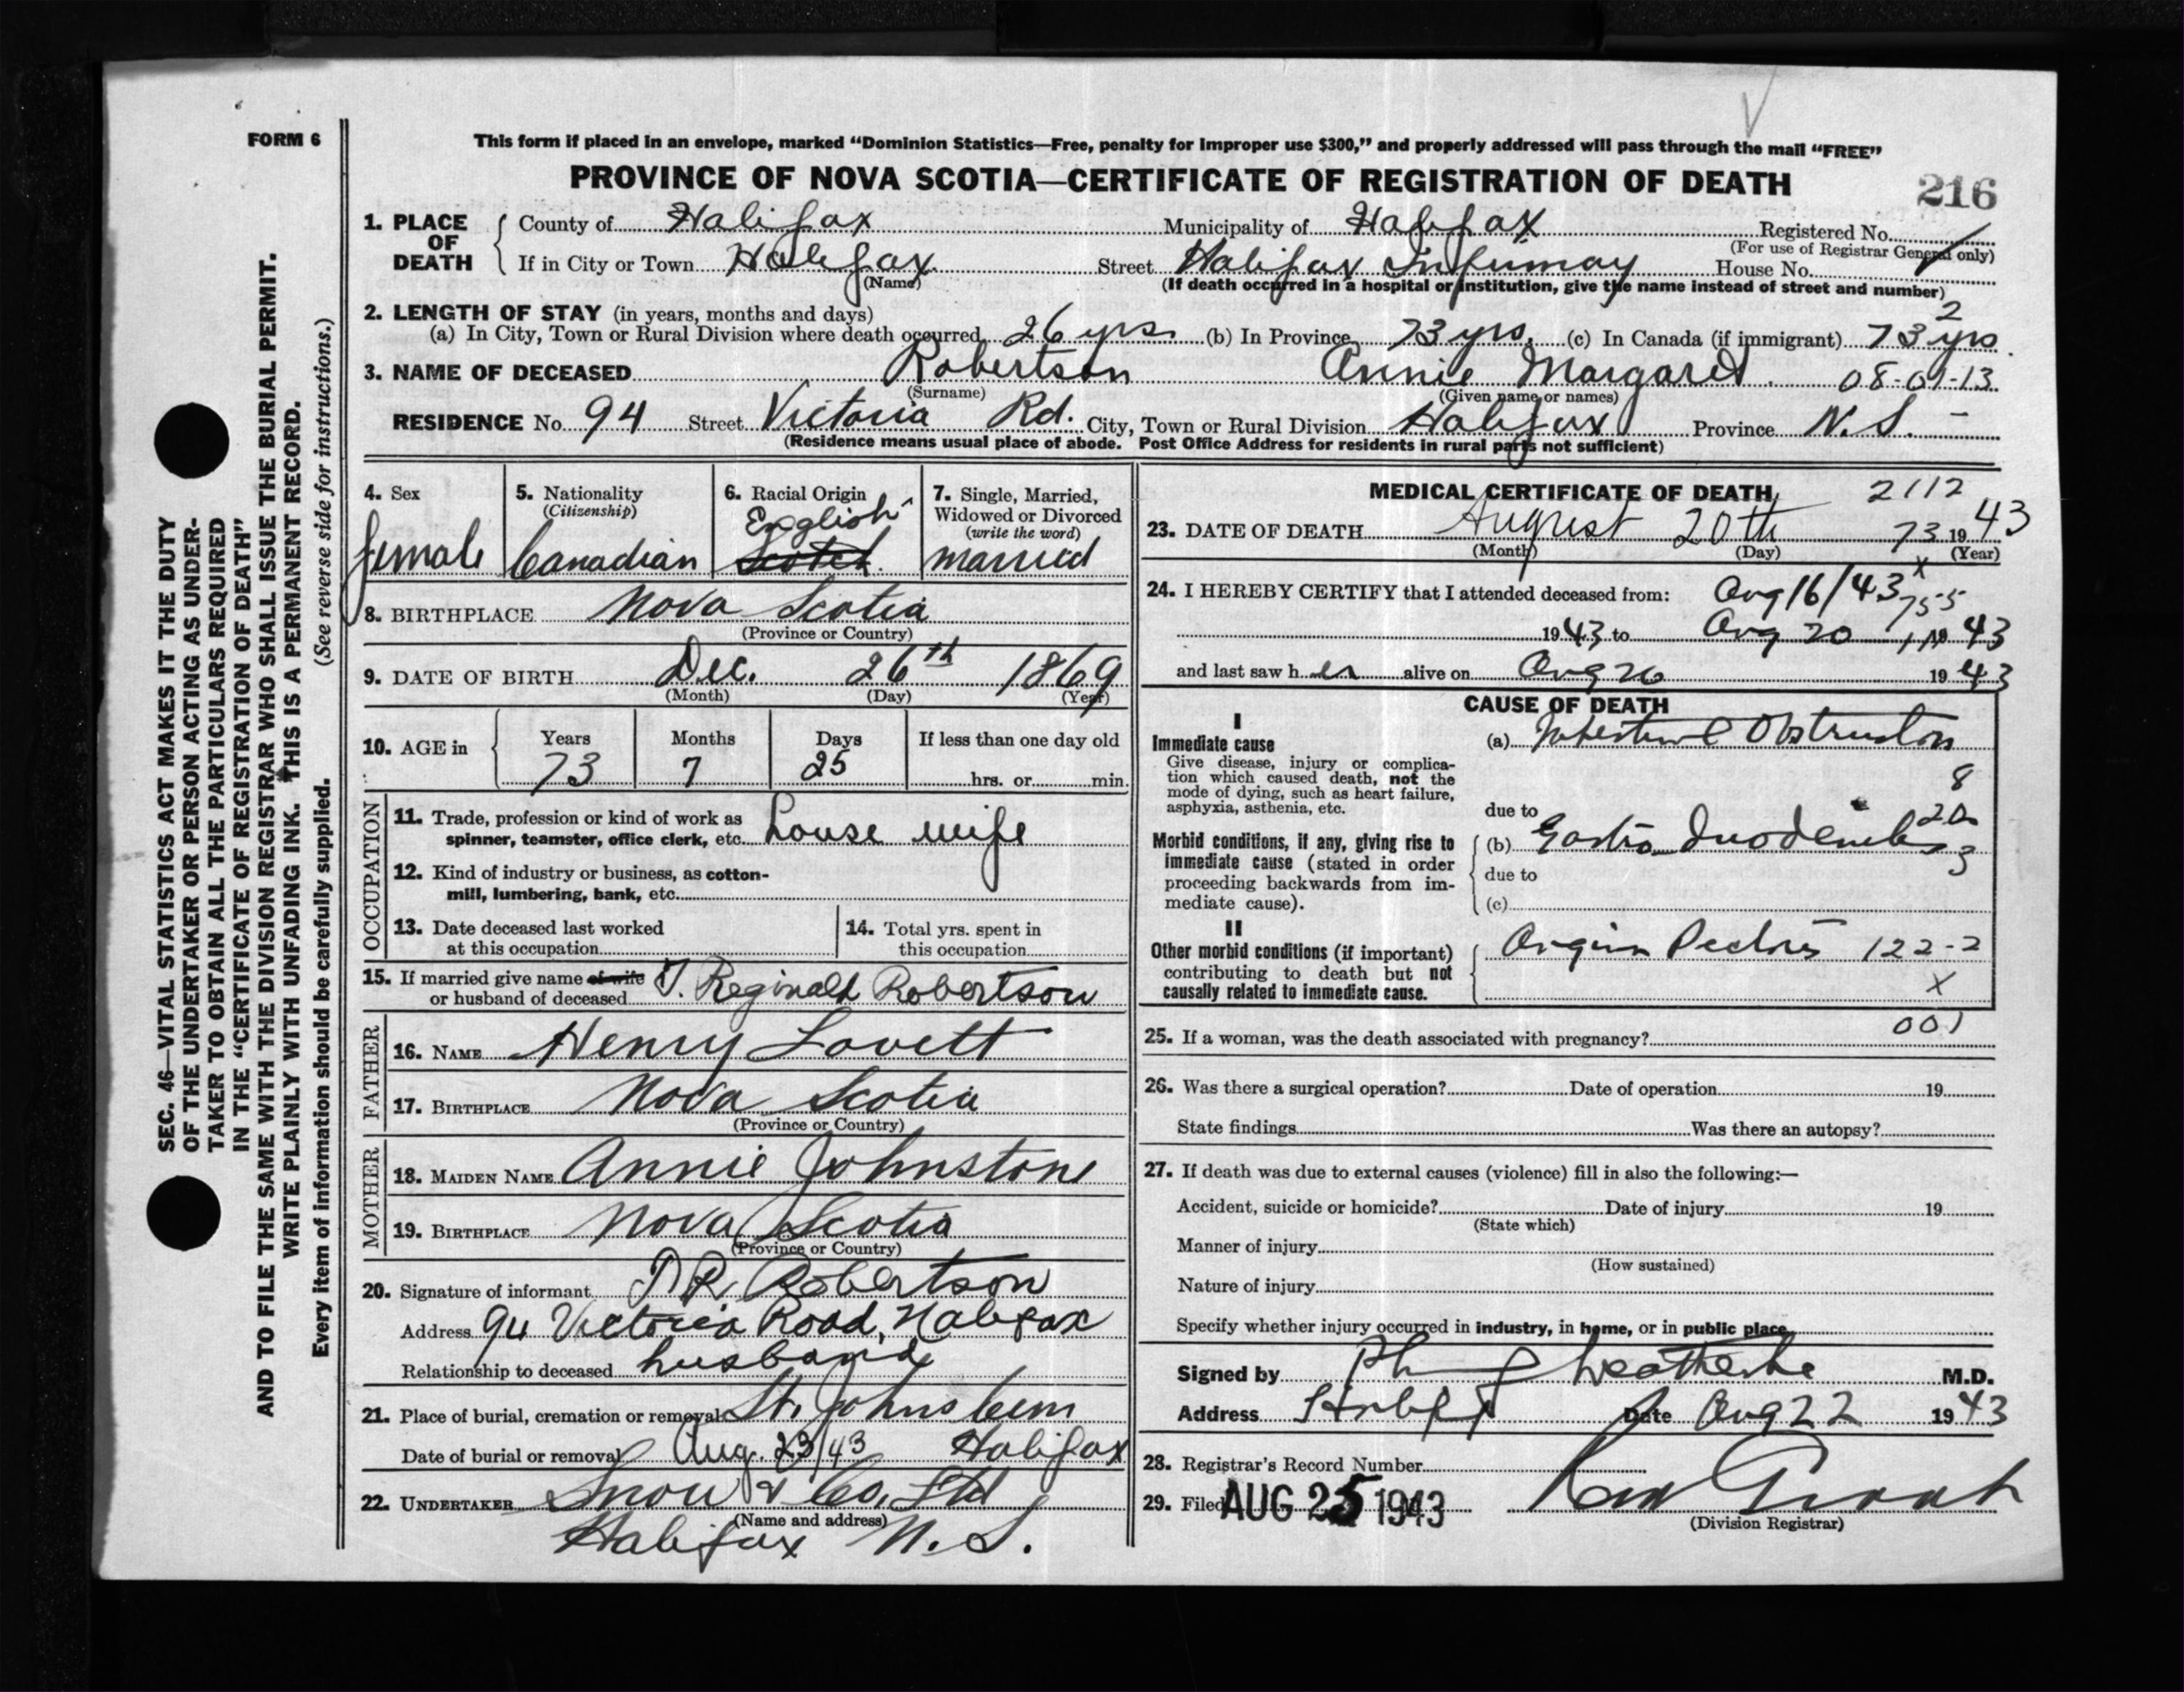 FORM 6
This form if placed in an envelope, marked “Dominion Statistics—Free, penalty for improper use $300,” and properly addressed will pass through the mail “FREE”
PROVINCE OF NOVA SCOTIA—CERTIFICATE OF REGISTRATION OF DEATH
216
1. PLACE OF DEATH
County of Halifax Municipality of Halifax Registered No.
(For use of Registrar General only)
If in City or Town Halifax Street Halifax Infirmary House No.
(Name) (If death occurred in a hospital or institution, give the name instead of street and number)
2. LENGTH OF STAY (in years, months and days) 2
(a) In City, Town or Rural Division where death occurred 26 yrs. (b) In Province 73 yrs. (c) In Canada (if immigrant) 73 yrs.
3. NAME OF DECEASED Robertson Annie Margaret 08-01-13
(Surname) (Given name or names)
RESIDENCE No. 94 Street Victoria Rd. City, Town or Rural Division Halifax Province N.S.
(Residence means usual place of abode. Post Office Address for residents in rural parts not sufficient)
4. Sex
female
5. Nationality
(Citizenship)
Canadian
6. Racial Origin
English
Scotch.
7. Single, Married,
Widowed or Divorced
(write the word)
married
8. BIRTHPLACE Nova Scotia
(Province or Country)
9. DATE OF BIRTH Dec. 26th 1869
(Month) (Day) (Year)
10. AGE in
Years Months Days If less than one day old
73 7 25 hrs. or min.
OCCUPATION
11. Trade, profession or kind of work as
spinner, teamster, office clerk, etc. house wife
12. Kind of industry or business, as cotton-
mill, lumbering, bank, etc.
13. Date deceased last worked
at this occupation
14. Total yrs. spent in
this occupation
15. If married give name of wife
or husband of deceased T. Reginald Robertson
FATHER
16. NAME Henry Lovett
17. BIRTHPLACE Nova Scotia
(Province or Country)
MOTHER
18. MAIDEN NAME Annie Johnstone
19. BIRTHPLACE Nova Scotia
(Province or Country)
20. Signature of informant T R Robertson
Address 94 Victoria Road, Halifax
Relationship to deceased husband
21. Place of burial, cremation or removal St. Johns Cem
Date of burial or removal Aug. 23/43 Halifax
22. UNDERTAKER Snow & Co. Ltd
(Name and address)
Halifax N.S.
MEDICAL CERTIFICATE OF DEATH 2112
23. DATE OF DEATH August 20th 73 1943
(Month) (Day) (Year)
x
24. I HEREBY CERTIFY that I attended deceased from: Aug 16/43
755
1943 to Aug 20 1943
and last saw her alive on Aug 20 1943
CAUSE OF DEATH
I
Immediate cause
Give disease, injury or complica-
tion which caused death, not the
mode of dying, such as heart failure,
asphyxia, asthenia, etc.
(a) Intestinal Obstruction
8
due to
20
Morbid conditions, if any, giving rise to
immediate cause (stated in order
proceeding backwards from im-
mediate cause).
(b) Gastro duodenitis
3
due to
(c)
II
Other morbid conditions (if important)
contributing to death but not
causally related to immediate cause.
Angina Pectoris 122-2
X
001
25. If a woman, was the death associated with pregnancy?
26. Was there a surgical operation? Date of operation 19
State findings Was there an autopsy?
27. If death was due to external causes (violence) fill in also the following:—
Accident, suicide or homicide? Date of injury 19
(State which)
Manner of injury
(How sustained)
Nature of injury
Specify whether injury occurred in industry, in home, or in public place
Signed by Weatherbe M.D.
Address Date Aug 22 1943
28. Registrar's Record Number
29. Filed AUG 25 1943
(Division Registrar)
SEC. 46—VITAL STATISTICS ACT MAKES IT THE DUTY
OF THE UNDERTAKER OR PERSON ACTING AS UNDER-
TAKER TO OBTAIN ALL THE PARTICULARS REQUIRED
IN THE “CERTIFICATE OF REGISTRATION OF DEATH”
AND TO FILE THE SAME WITH THE DIVISION REGISTRAR WHO SHALL ISSUE THE BURIAL PERMIT.
WRITE PLAINLY WITH UNFADING INK. THIS IS A PERMANENT RECORD.
Every item of information should be carefully supplied. (See reverse side for instructions.)